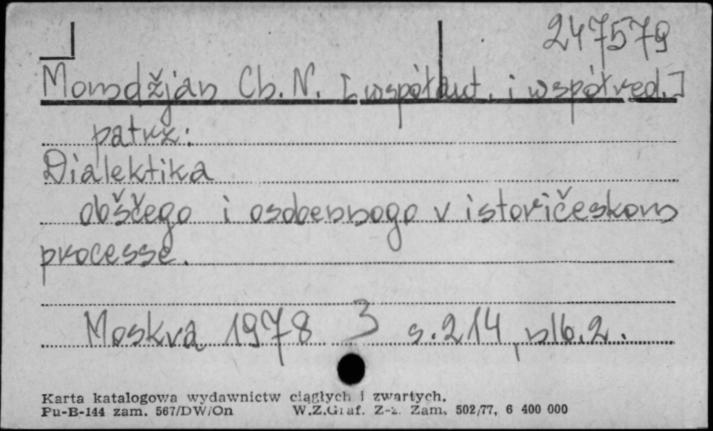 247579
Momdžjan Ch. N. [współaut. i współred.]
patrz:
Dialektika
obščego i osobennogo v istoričeskom
processe.
Moskva 1978 3 s. 214, nlb. 2.
Karta katalogowa wydawnictw ciągłych i zwartych.
Pu-B-144 zam. 567/DW/On W.Z.Graf. Z-. Zam. 502/77, 6 400 000